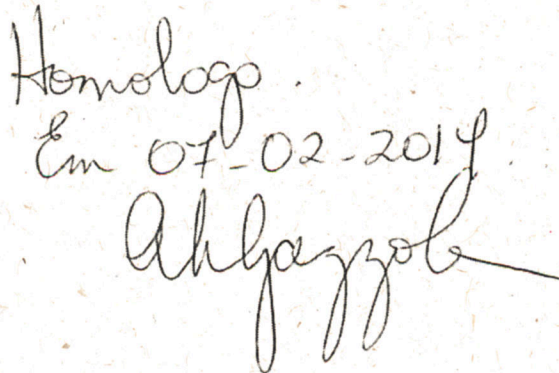 Homologo.
Em 07-02-2014.
AhGazzola